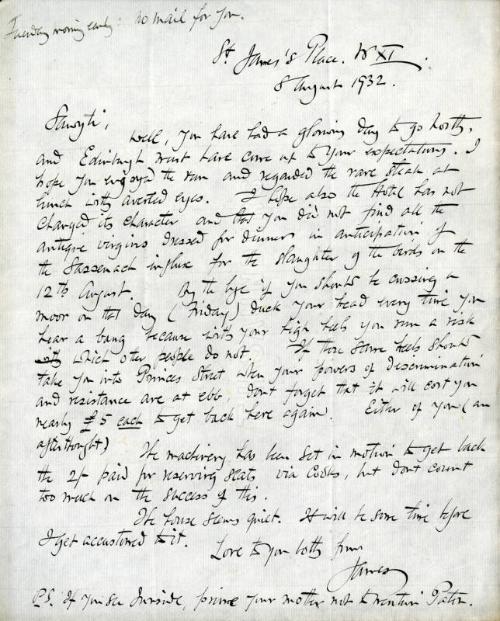 Tuesday morning early: no mail for you.
St. James's Place. W XI.
8 August 1932.
Well, you have had a glorious day to go North,
and Edinburgh must have come up to your expectations. I
hope you enjoyed the run and regarded the rare steak at
lunch with averted eyes. I hope also the Hotel has not
changed its character and that you did not find all the
antique virgins dressed for dinner in anticipation of
the Sassenach influx for the slaughter of the birds on the
12th August. By the bye if you should be crossing a
moor on that day (Friday) duck your head every time you
hear a bang because with your high heels you run a risk
which other people do not. If those same heels should
take you into Princes Street when your powers of discrimination
and resistance are at ebb don't forget that it will cost you
nearly £5 each to get back here again. Either of you (an
afterthought)
The machinery has been set in motion to get back
the 2/- paid for reserving seats, via Cooks, but don't count
too much on the success of this.
The house seems quiet. It will be some time before
I get accustomed to it.
Love to you both from
James
P.S. If you see, prime your mother not to mention